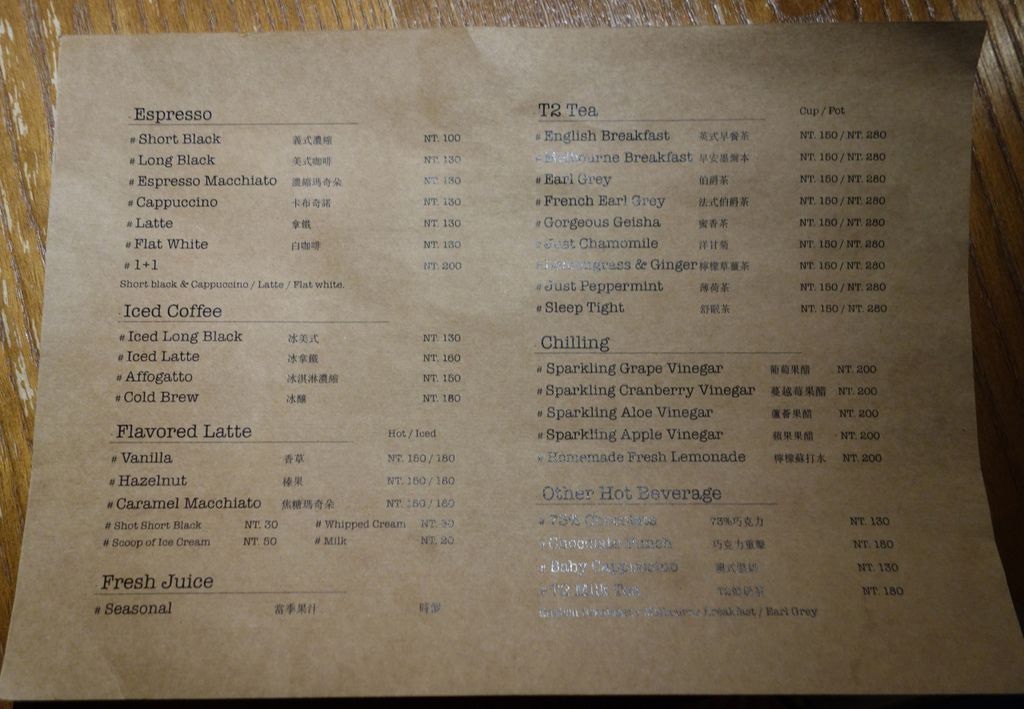 Espresso
# Short Black 義式濃縮 NT. 100
# Long Black 美式咖啡 NT. 130
# Espresso Macchiato 濃縮瑪奇朵 NT. 130
# Cappuccino 卡布奇諾 NT. 130
# Latte 拿鐵 NT. 130
# Flat White 白咖啡 NT. 130
# 1+1 NT. 200
Short black & Cappuccino / Latte / Flat white.
Iced Coffee
# Iced Long Black 冰美式 NT. 130
# Iced Latte 冰拿鐵 NT. 160
# Affogatto 冰淇淋濃縮 NT. 150
# Cold Brew 冰釀 NT. 180
Flavored Latte Hot / Iced
# Vanilla 香草 NT. 150 / 180
# Hazelnut 榛果 NT. 150 / 180
# Caramel Macchiato 焦糖瑪奇朵 NT. 150 / 180
# Shot Short Black NT. 30 # Whipped Cream NT. 30
# Scoop of Ice Cream NT. 50 # Milk NT. 20
Fresh Juice
# Seasonal 當季果汁 時價
T2 Tea Cup / Pot
# English Breakfast 英式早餐茶 NT. 150 / NT. 280
# Melbourne Breakfast 早安墨爾本 NT. 150 / NT. 280
# Earl Grey 伯爵茶 NT. 150 / NT. 280
# French Earl Grey 法式伯爵茶 NT. 150 / NT. 280
# Gorgeous Geisha 蜜香茶 NT. 150 / NT. 280
# Just Chamomile 洋甘菊 NT. 150 / NT. 280
# Lemongrass & Ginger 檸檬草薑茶 NT. 150 / NT. 280
# Just Peppermint 薄荷茶 NT. 150 / NT. 280
# Sleep Tight 舒眠茶 NT. 150 / NT. 280
Chilling
# Sparkling Grape Vinegar 葡萄果醋 NT. 200
# Sparkling Cranberry Vinegar 蔓越莓果醋 NT. 200
# Sparkling Aloe Vinegar 蘆薈果醋 NT. 200
# Sparkling Apple Vinegar 蘋果果醋 NT. 200
# Homemade Fresh Lemonade 檸檬蘇打水 NT. 200
Other Hot Beverage
# 73% Chocolate 73%巧克力 NT. 130
# Chocolate Punch 巧克力重擊 NT. 180
# Baby Cappuccino NT. 130
# T2 Milk Tea T2鮮奶茶 NT. 180
English Breakfast / Melbourne Breakfast / Earl Grey